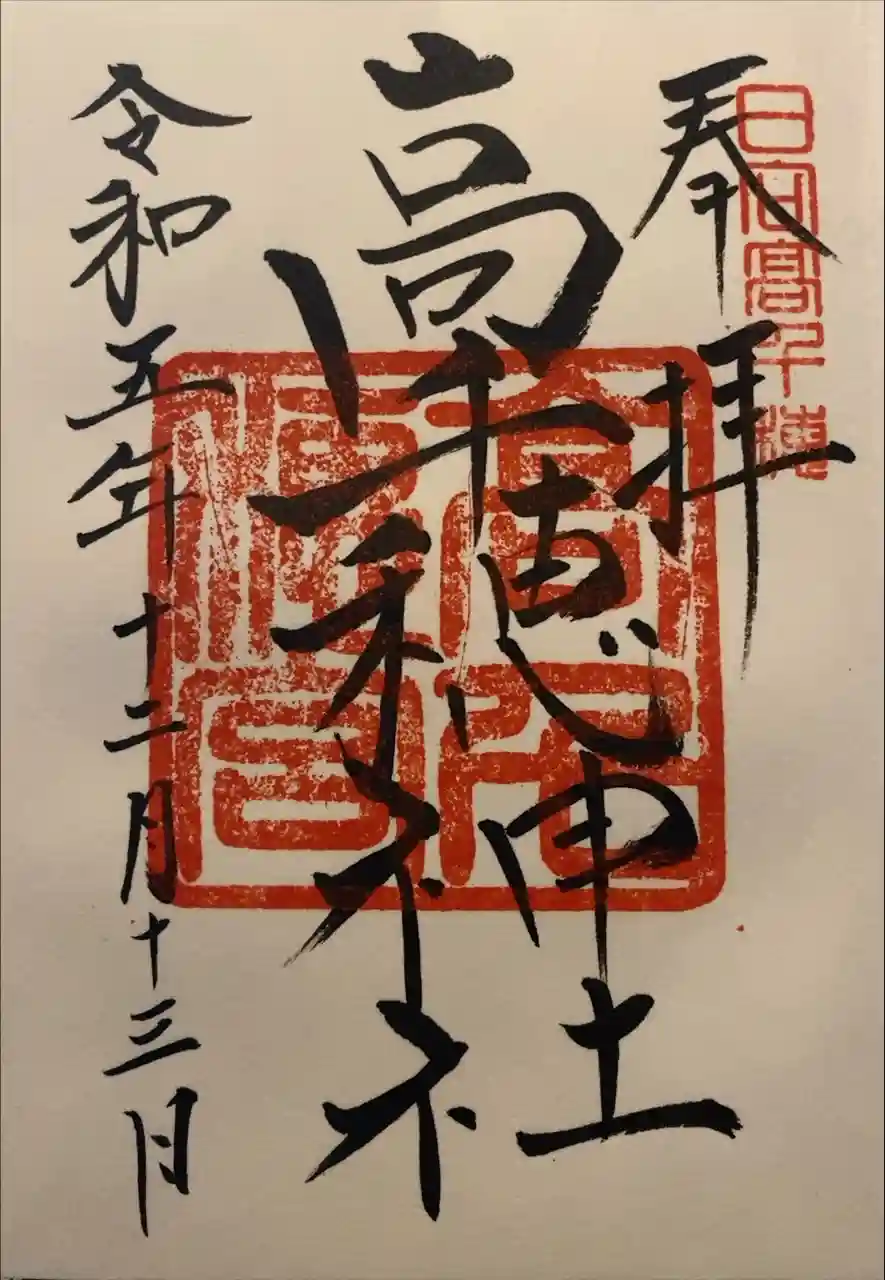 日向高千穂
奉拝
高千穂神社
令和五年十二月十三日